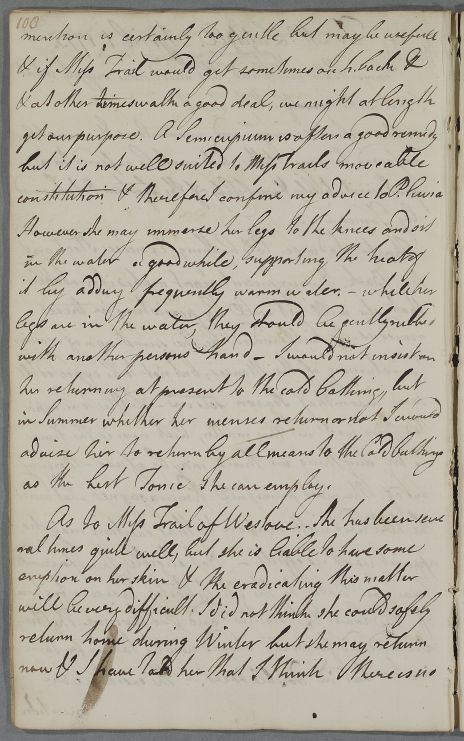 108
mention is certainly too gentle but may be usefull
& if Miss Trail would get sometimes on h. back &
& at other times walk a good deal, we might at length
get our purpose. A Semicupium is often a good remedy
but it is not well suited to Miss Trails moveable
constitution & therefore I confine my advice to P. luvia
However she may immerse her legs to the knees and sit
in the water a good while, supporting the heat of
it by adding frequently warm water. - while her
legs are in the water, they should be gently rubbed
with another persons hand - I would not insist on
her returning at present to the cold bathing, but
in Summer whether her menses return or not I would
advise her to return by all means to the Cold bathing
as the best Tonic she can employ.
As to Miss Trail of Westove.. She has been seve
ral times quite well, but she is liable to have some
eruption on her skin & the eradicating this matter
will be very difficult. I did not think she could safely
return home during Winter but she may return
now & I have told her that I think there is no